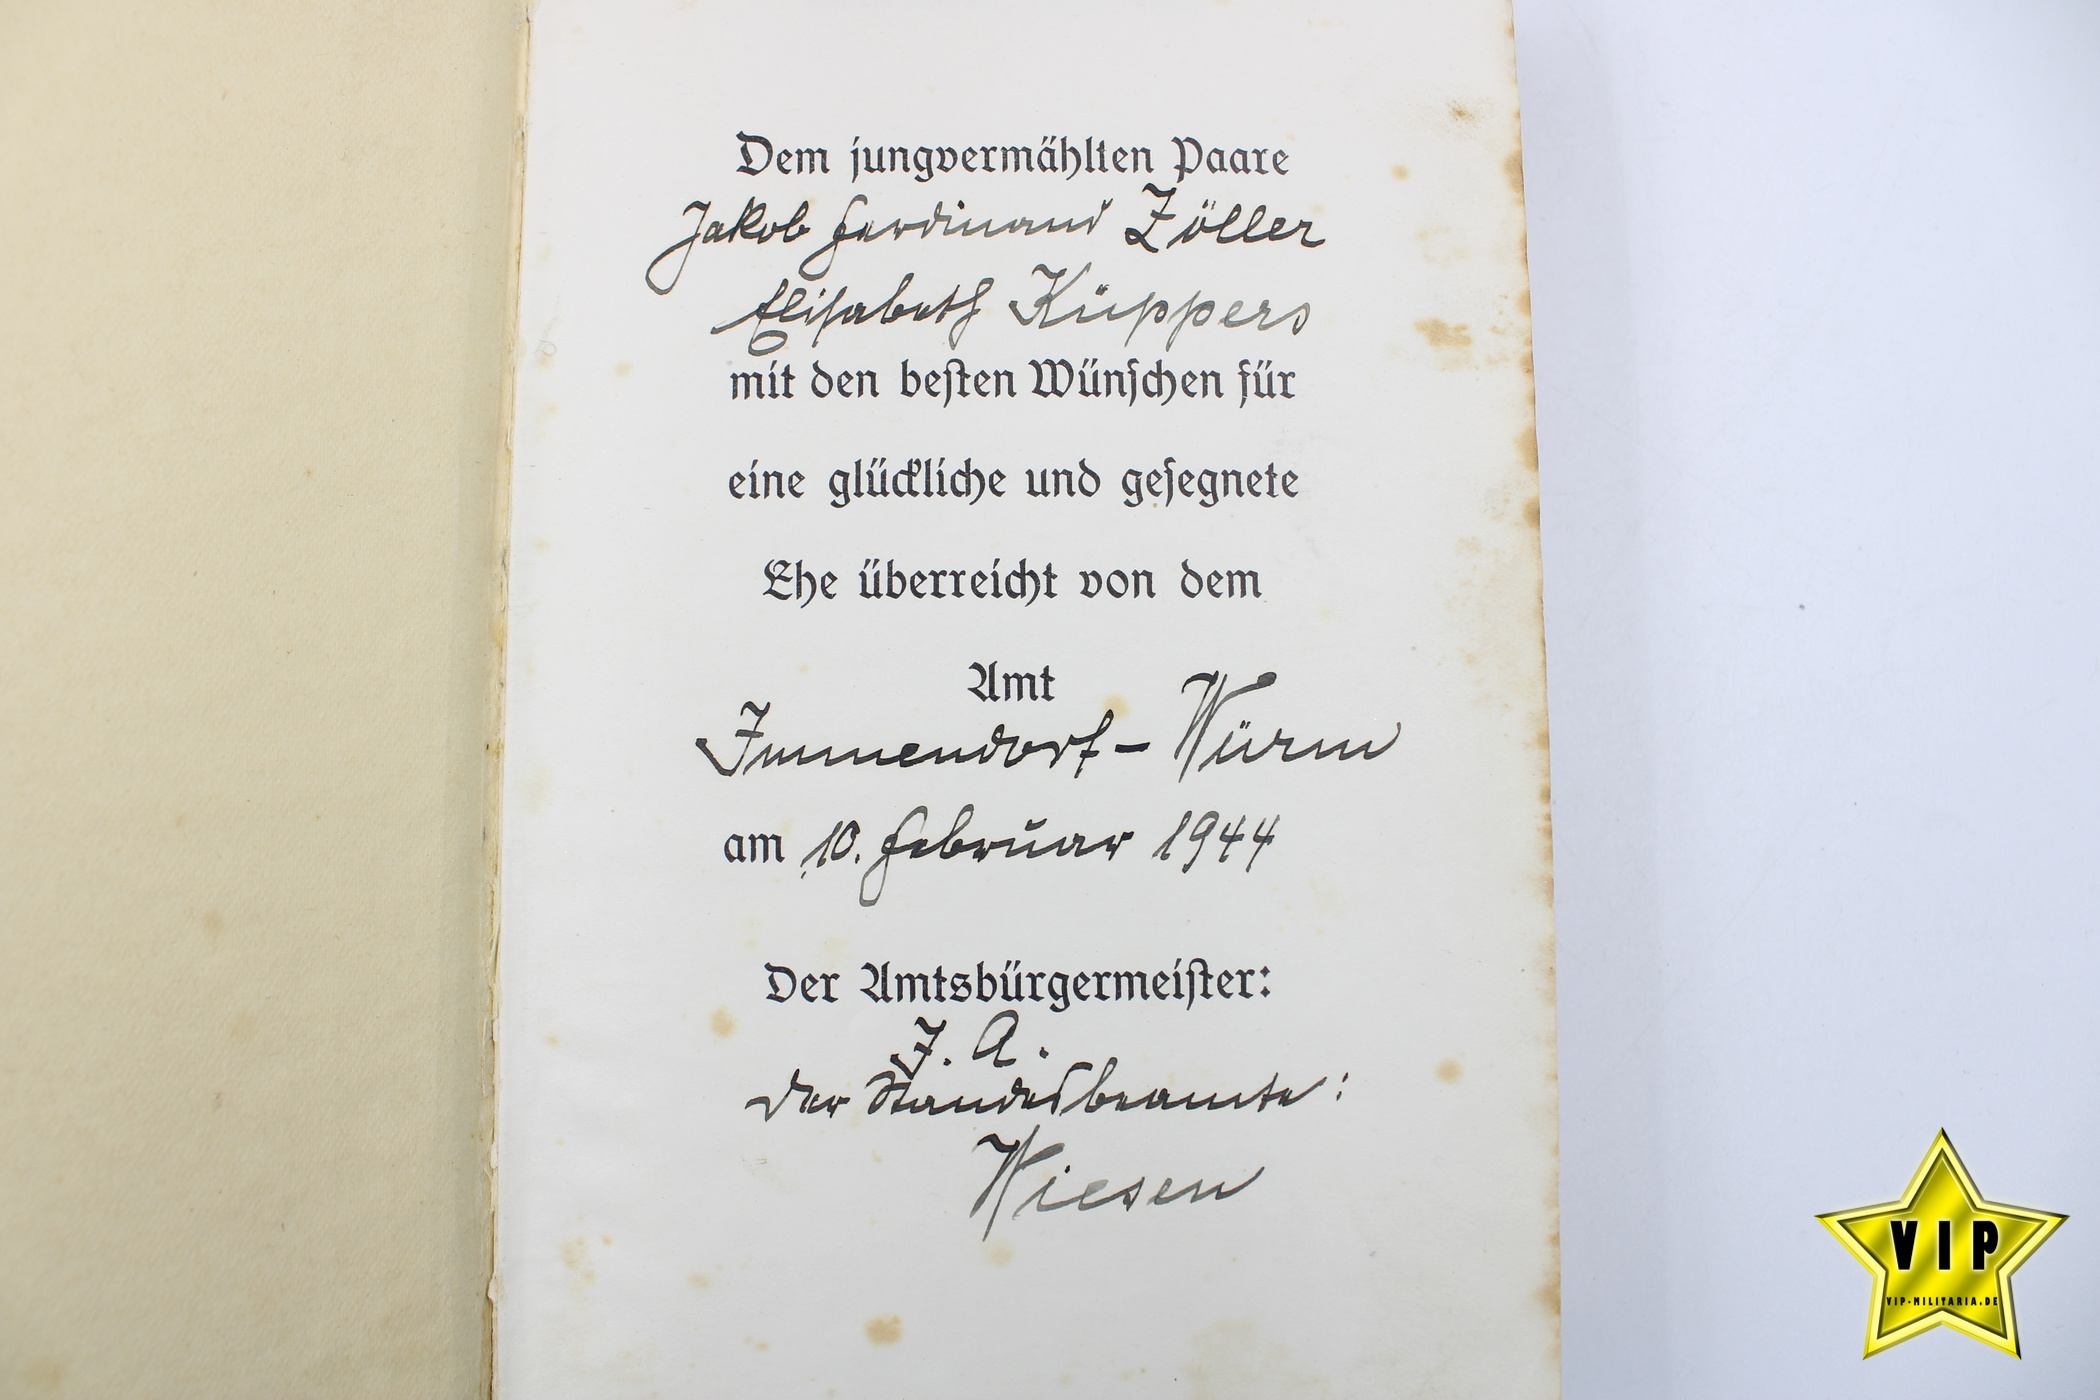 Dem jungvermählten Paare
Jakob Ferdinand Zöller
Elisabeth Küppers
mit den besten Wünschen für
eine glückliche und gesegnete
Ehe überreicht von dem
Amt
Immendorf - Würm
am 10. Februar 1944
Der Amtsbürgermeister:
J. A.
Der Standesbeamte:
Wiesen
VIP
VIP-MILITARIA.DE